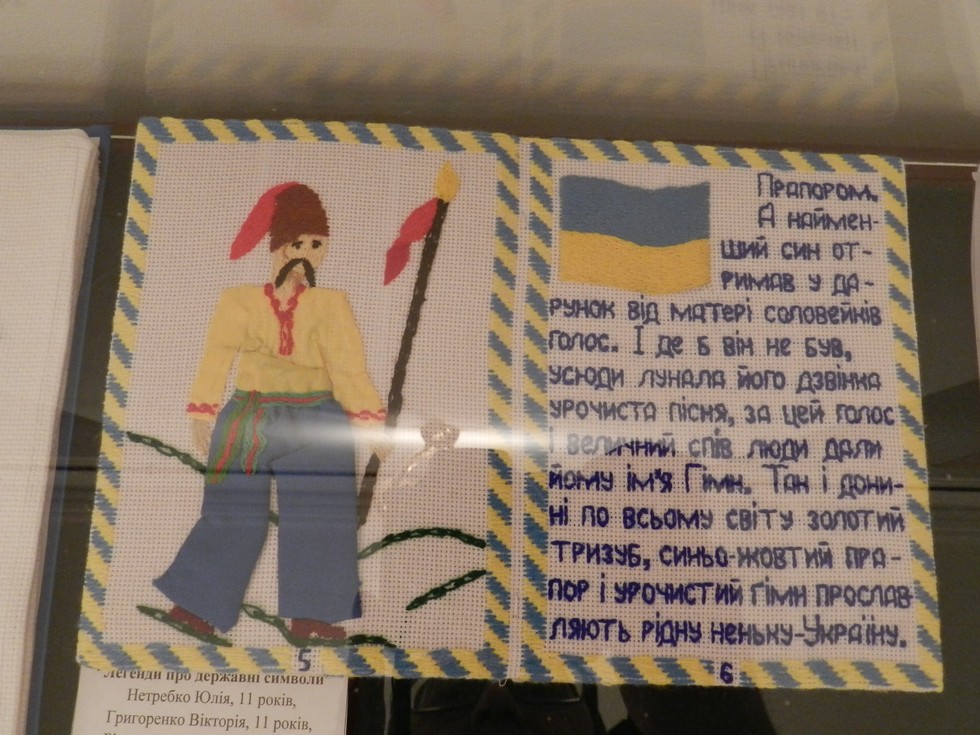 Прапором.
А наймен-
ший син от-
римав у да-
рунок від матері соловейків
голос. І де б він не був,
усюди лунала його дзвінка
урочиста пісня, за цей голос
і величний спів люди дали
йому ім'я Гімн. Так і дони-
ні по всьому світу золотий
тризуб, синьо-жовтий пра-
пор і урочистий Гімн прослав
ляють рідну неньку-Україну.
5
6
"Легенди про державні символи"
Нетребко Юлія, 11 років,
Григоренко Вікторія, 11 років,